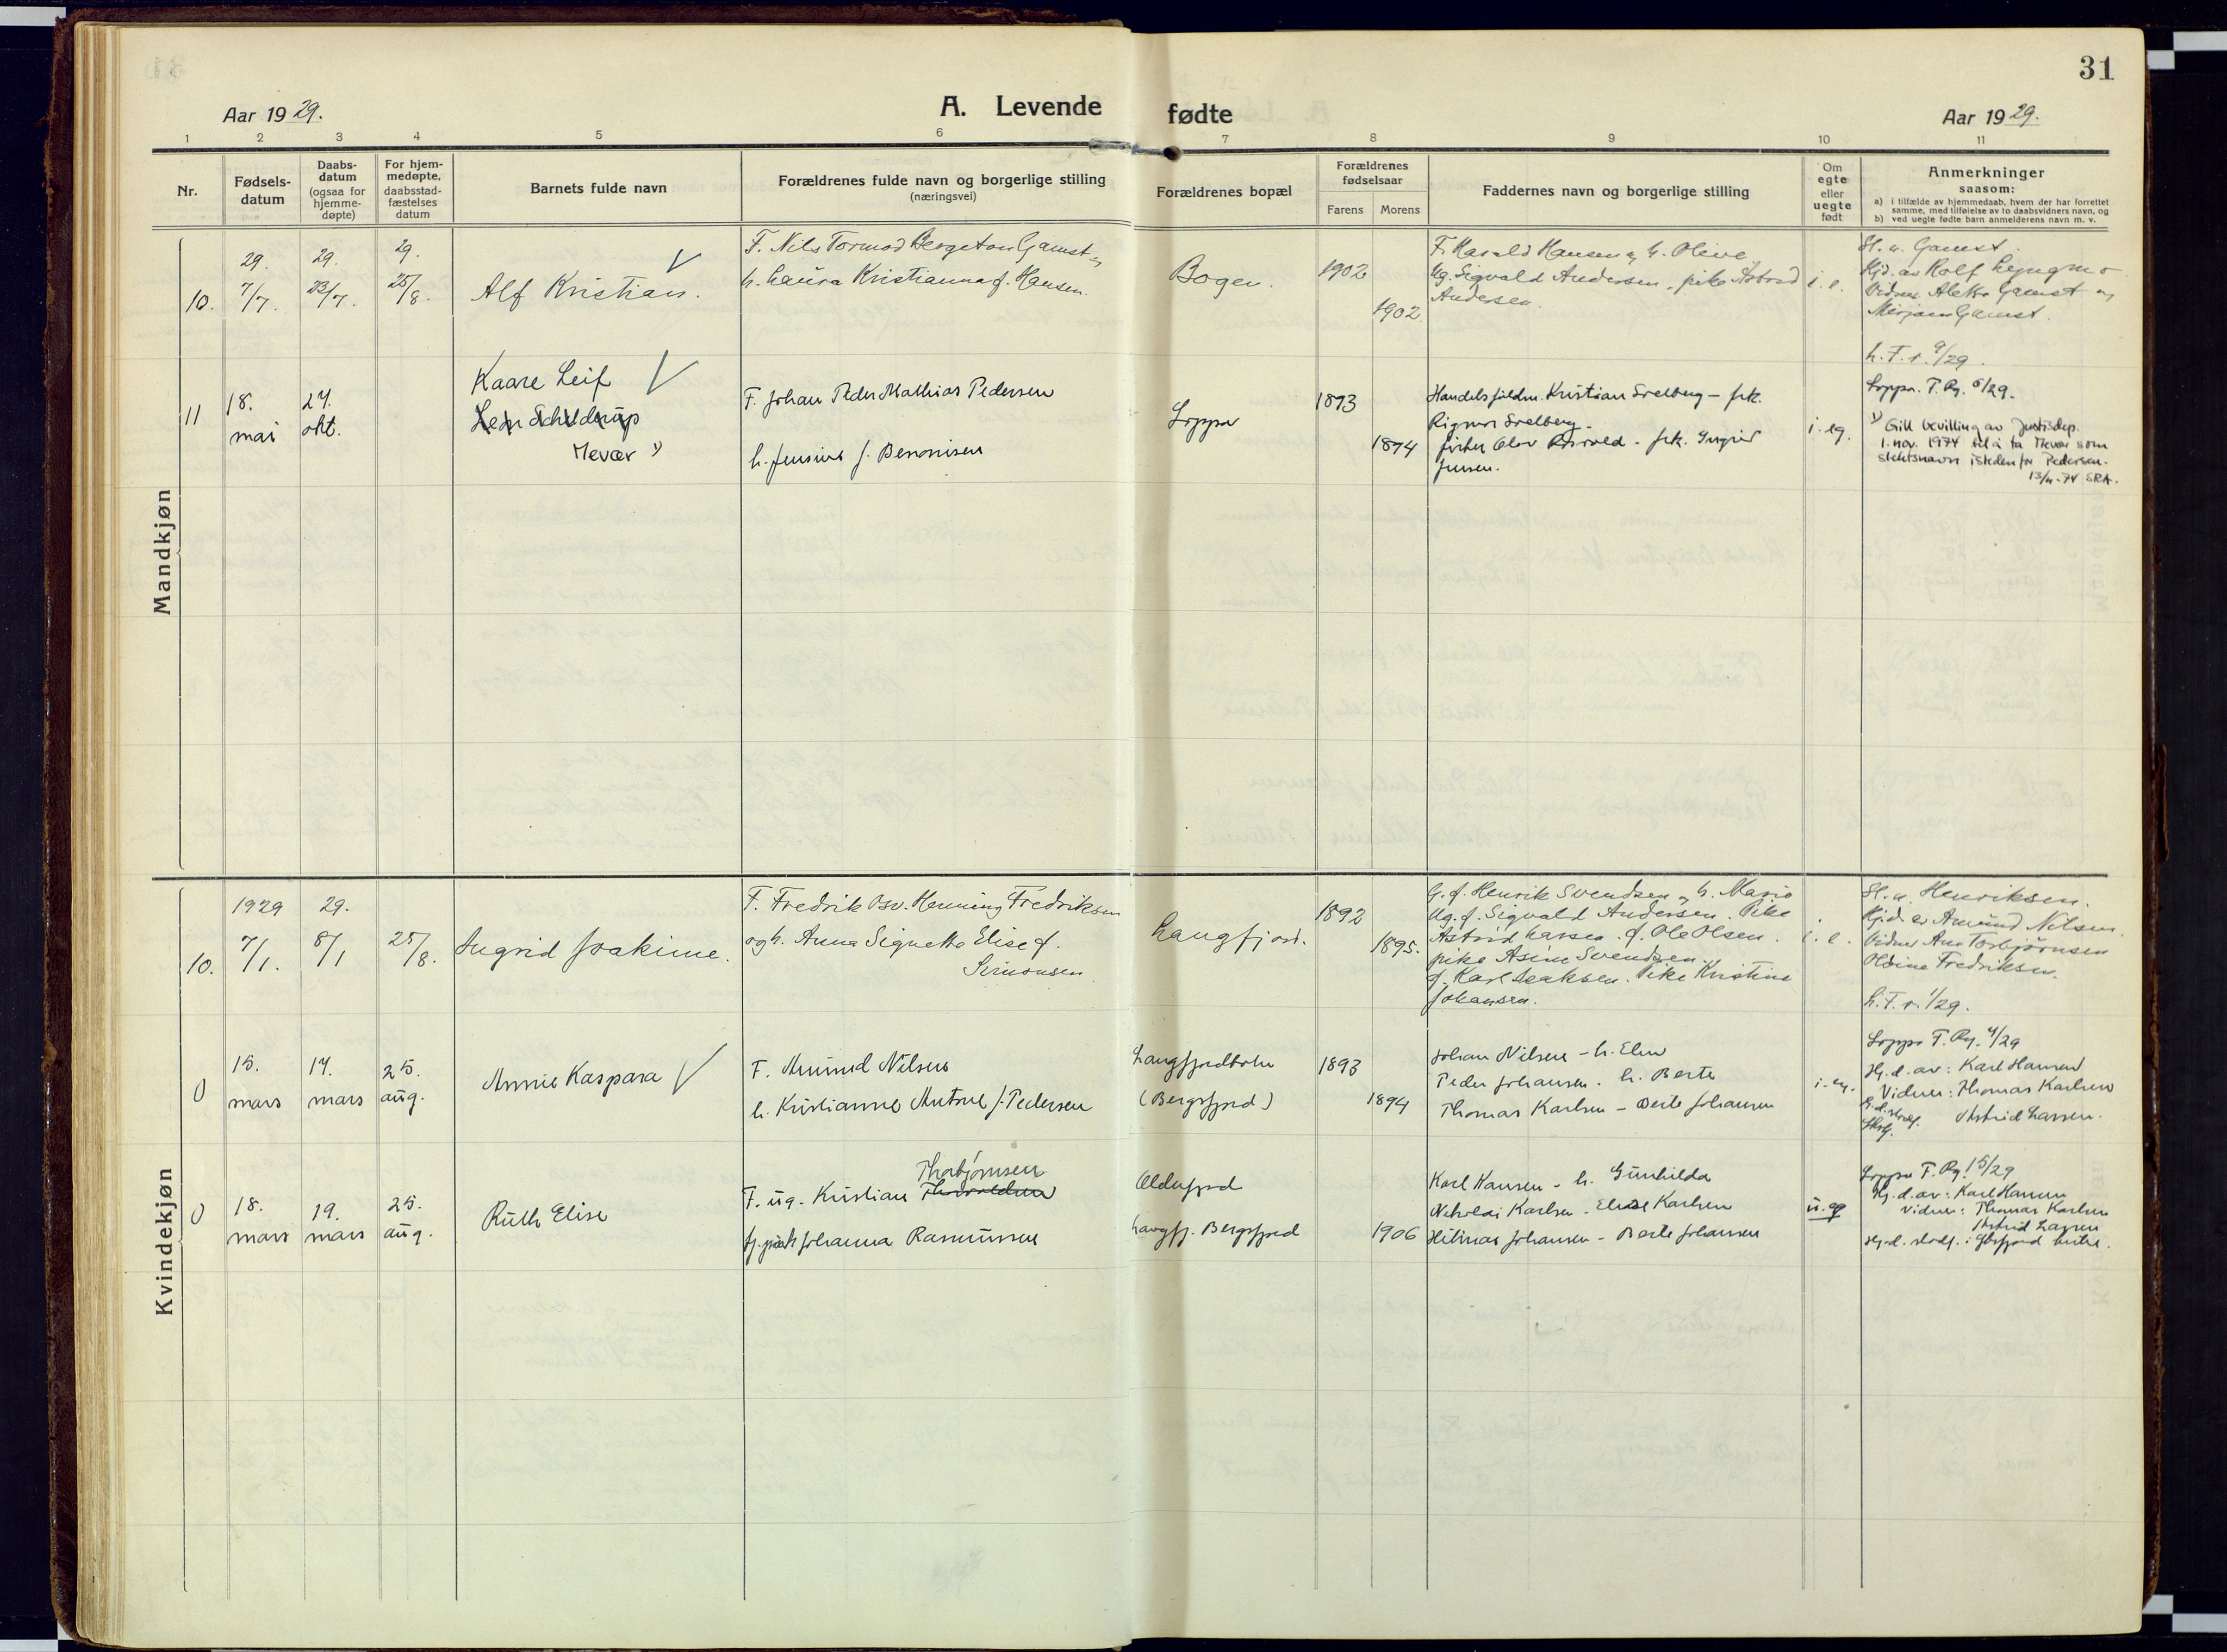 31
Aar 1929.
A. Levende fødte
Aar 1929.
1 2 3 4 5 6 7 8 9 10 11
Nr.
Fødsels-
datum
Daabs-
datum
(ogsaa for
hjemme-
døpte)
For hjem-
medøpte,
daabsstad-
fæstelses
datum
Barnets fulde navn
Forældrenes fulde navn og borgerlige stilling
(næringsvei)
Forældrenes bopæl
Forældrenes
fødselsaar
Farens Morens
Faddernes navn og borgerlige stilling
Om
egte
eller
uegte
født
Anmerkninger
saasom:
a) i tilfælde av hjemmedaab, hvem der har forrettet
samme, med tilføielse av to daabsvidners navn, og
b) ved uegte fødte barn anmelderens navn m. v.
Mandkjøn
10.
29.
7/7.
29.
23/7.
29.
25/8.
Alf Kristian.
F. Nils Tormod Gamst og
h. Laura Kristianna f. Hansen.
Bogen.
1902
1902
F. Harald Hansen og h. Olive.
Ug. Sigvald Andersen, pike Astrid
Andersen.
i. e.
Gamst.
Hjd. av Rolf Lyngmo
Vidner Gamst og
Mirjam Gamst.
L. T. r. 9/29.
11
18.
mai
27.
okt.
Kaare Leif
Schjelderup
Mevær 1)
F. Johan Peder Mathias Pedersen
h. Jensine f. Benonisen
Loppa
1893
1894
Handelsfuldm. Kristian Svelberg - frk.
Rigmor Svelberg.
fisker Olav - frk. Ingrid
Jensen.
i. eg.
Loppa. T. Rg. 6/29.
1) Gitt bevilling av Justisdep.
1. nov. 1974 til å ta Mevær som
slektsnavn istedenfor Pedersen.
13/11-74 SRA.
Kvindekjøn
10.
1929
7/1.
29.
8/1
25/8.
Ingrid Joakime.
F. Fredrik Osv. Henning Fredriksen
og h. Anna Signetta Elise f.
Simonsen
Langfjord.
1892
1895.
G. f. Henrik Svendsen og h. Marie
Ug. f. Sigvald Andersen. Pike
Astrid Larsen. f. Ole Olsen.
pike Asine Svendsen.
f. Karl Isaksen. Pike Kristine
Johansen.
i. e.
Henriksen.
Hjd. av Amund Nilsen.
Vidner Ane Torbjørnsen
Oldine Fredriksen.
L. T. r. 1/29.
0
15.
mars
17.
mars
25.
aug.
Annie Kaspara
F. Amund Nilsen
h. Kristianne f. Pedersen
Langfjordbotn
(Bergsfjord)
1893
1894
Johan Nilsen - h. Elen
Peder Johansen. h. Berte
Thomas Karlsen - Berte Johansen
i. eg.
Loppa T. Rg. 4/29
Hj. d. av: Karl Hansen
Vidner: Thomas Karlsen
Astrid Larsen.
0
18.
mars
19.
mars
25.
aug.
Ruth Elise
Thorbjørnsen
F. ug. Kristian Thorvaldsen
fj. pike Johanna Rasmussen
Øldfjord
Langfj. Bergsfjord
1906
Karl Hansen - h. Gunhilda
Nikolai Karlsen - Elise Karlsen
Hilmar Johansen - Berte Johansen
u. eg
Loppa T. Rg. 15/29
Hj. d. av: Karl Hansen
Vidner: Thomas Karlsen
Astrid Larsen